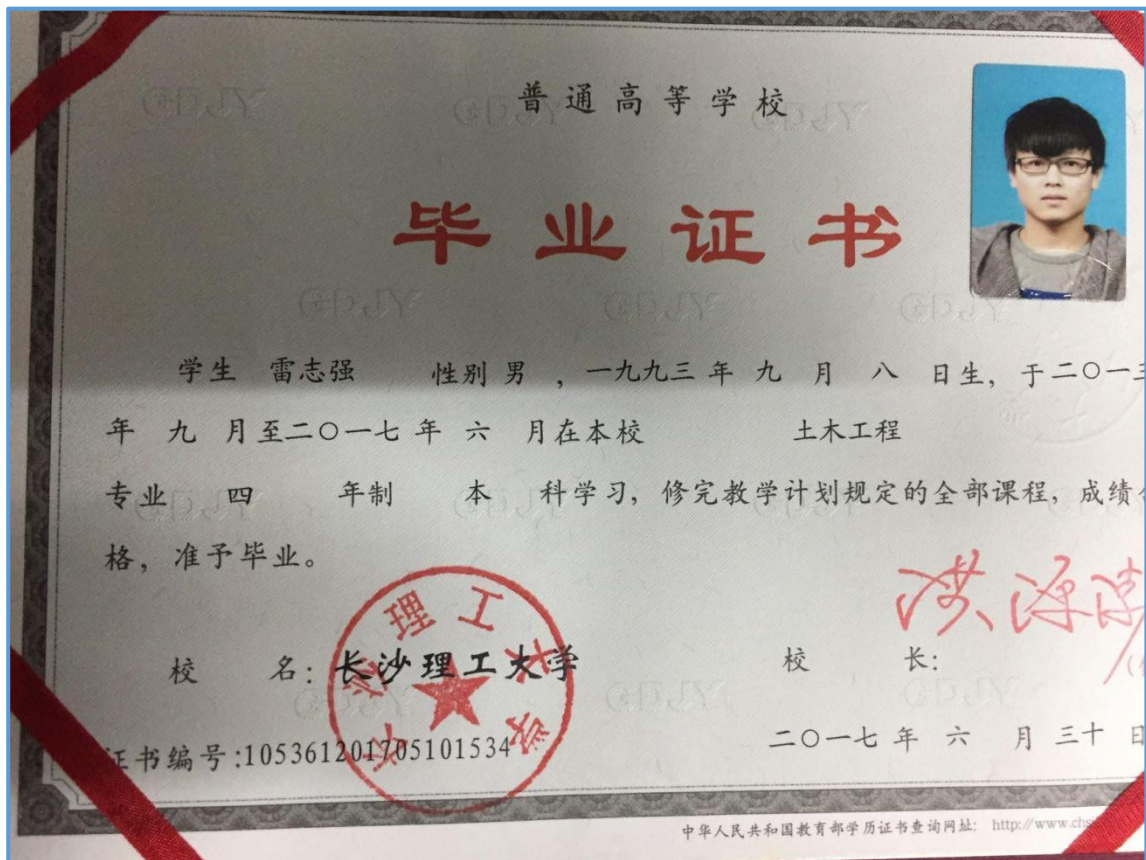 普通高等学校
毕业证书
学生 雷志强 性别 男 ，一九九三 年 九 月 八 日生，于二〇一三
年 九 月至二〇一七 年 六 月在本校 土木工程
专业 四 年制 本 科学习，修完教学计划规定的全部课程，成绩合
格，准予毕业。
校 名：长沙理工大学
校 长：
洪源渤
长沙理工大学
证书编号:105361201705101534
二〇一七 年 六 月 三十 日
中华人民共和国教育部学历证书查询网址: http://www.chsi